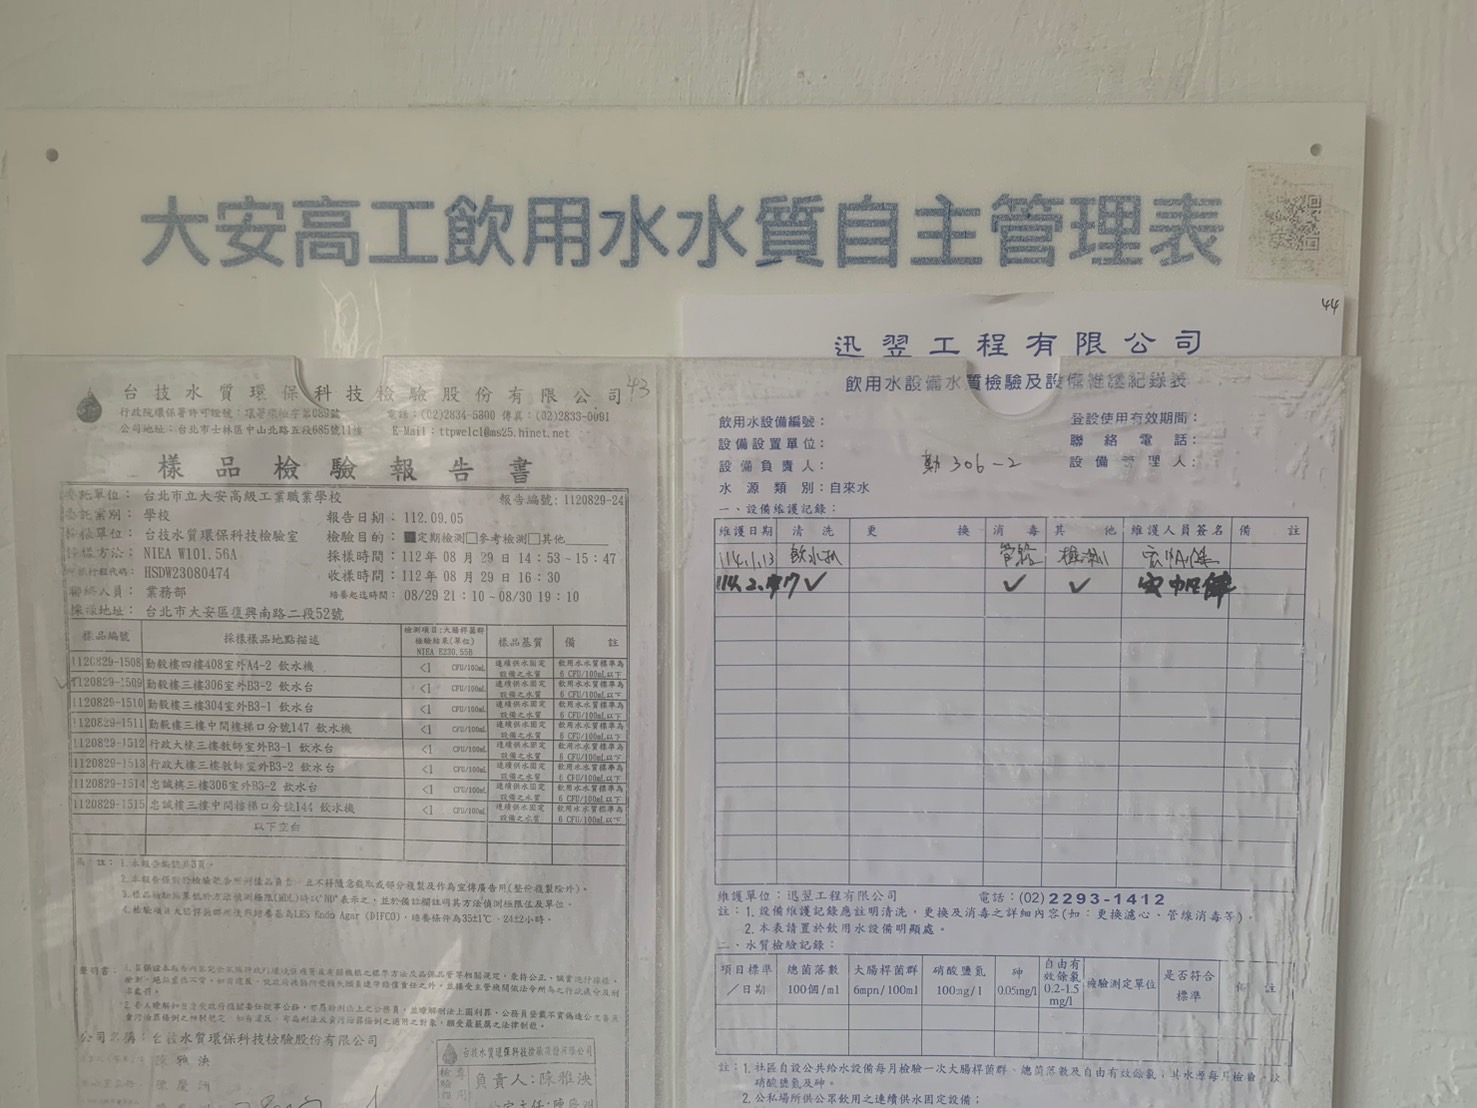 大安高工飲用水水質自主管理表
44
迅翌工程有限公司
飲用水設備水質檢驗及設備維護紀錄表
飲用水設備編號：
登設使用有效期間：
設備設置單位：
聯絡電話：
設備負責人：
勤306-2
設備管理人：
水源類別：自來水
一、設備維護記錄：
維護日期 清洗 更換 消毒 其他 維護人員簽名 備註
114.1.13 飲水机 管路
114.2. ✓ ✓ ✓
維護單位：迅翌工程有限公司 電話：(02) 2293-1412
註：1.設備維護記錄應註明清洗，更換及消毒之詳細內容(如：更換濾心、管線消毒等)。
2.本表請置於飲用水設備明顯處。
二、水質檢驗記錄：
項目標準／日期 總菌落數100個/ml 大腸桿菌群6mpn/100ml 硝酸鹽氮100mg/l 砷0.05mg/l 自由有效餘氯0.2-1.5mg/l 檢驗測定單位 是否符合標準 備註
註：1.社區自設公共給水設備每月檢驗一次大腸桿菌群、總菌落數及自由有效餘氯，其水源每月檢驗一次
硝酸鹽氮及砷。
2.公私場所供公眾飲用之連續供水固定設備：
43
台技水質環保科技檢驗股份有限公司
行政院環保署許可證號：環署環檢字第089號 電話：(02)2834-5800 傳真：(02)2833-0091
公司地址：台北市士林區中山北路五段685號11樓 E-Mail：ttpwelcl@ms25.hinet.net
樣品檢驗報告書
委託單位：台北市立大安高級工業職業學校 報告編號：1120829-24
委託案別：學校 報告日期：112.09.05
採樣單位：台技水質環保科技檢驗室 檢驗目的：■定期檢測□參考檢測□其他
採樣方法：NIEA W101.56A 採樣時間：112年08月29日14：53~15：47
採樣行程代碼：HSDW23080474 收樣時間：112年08月29日16：30
聯絡人員：業務部 培養起迄時間：08/29 21：10~08/30 19：10
採樣地址：台北市大安區復興南路二段52號
樣品編號 採樣樣品地點描述 檢測項目:大腸桿菌群 檢驗結果(單位) NIEA E230.55B 樣品基質 備註
1120829-1508 勤毅樓四樓408室外A4-2 飲水機 <1 CFU/100mL 連續供水固定設備之水質 飲用水水質標準為6 CFU/100mL以下
1120829-1509 勤毅樓三樓306室外B3-2 飲水台 <1 CFU/100mL 連續供水固定設備之水質 飲用水水質標準為6 CFU/100mL以下
1120829-1510 勤毅樓三樓304室外B3-1 飲水台 <1 CFU/100mL 連續供水固定設備之水質 飲用水水質標準為6 CFU/100mL以下
1120829-1511 勤毅樓三樓中間樓梯口分號147 飲水機 <1 CFU/100mL 連續供水固定設備之水質 飲用水水質標準為6 CFU/100mL以下
1120829-1512 行政大樓三樓教師室外B3-1 飲水台 <1 CFU/100mL 連續供水固定設備之水質 飲用水水質標準為6 CFU/100mL以下
1120829-1513 行政大樓三樓教師室外B3-2 飲水台 <1 CFU/100mL 連續供水固定設備之水質 飲用水水質標準為6 CFU/100mL以下
1120829-1514 忠誠樓三樓306室外B3-2 飲水台 <1 CFU/100mL 連續供水固定設備之水質 飲用水水質標準為6 CFU/100mL以下
1120829-1515 忠誠樓三樓中間樓梯口分號144 飲水機 <1 CFU/100mL 連續供水固定設備之水質 飲用水水質標準為6 CFU/100mL以下
以下空白
備註：1.本報告編號共3頁。
2.本報告僅對於檢驗報告所列樣品負責，且不得隨意截取或部分複製及作為宣傳廣告用(整份複製除外)。
3.樣品檢驗結果低於方法偵測極限(MDL)時以"ND"表示之，並於備註欄註明其方法偵測極限值及單位。
4.檢驗項目大腸桿菌群所使用培養基為LES Endo Agar (DIFCO)，培養條件為35±1℃、24±2小時。
聲明書：
公司名稱：台技水質環保科技檢驗股份有限公司
陳雅泱
台技水質環保科技檢驗股份有限公司
負責人：陳雅泱